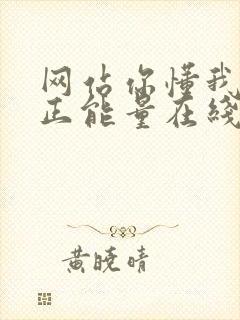 网站你懂我
正能量在线
黄晓晴